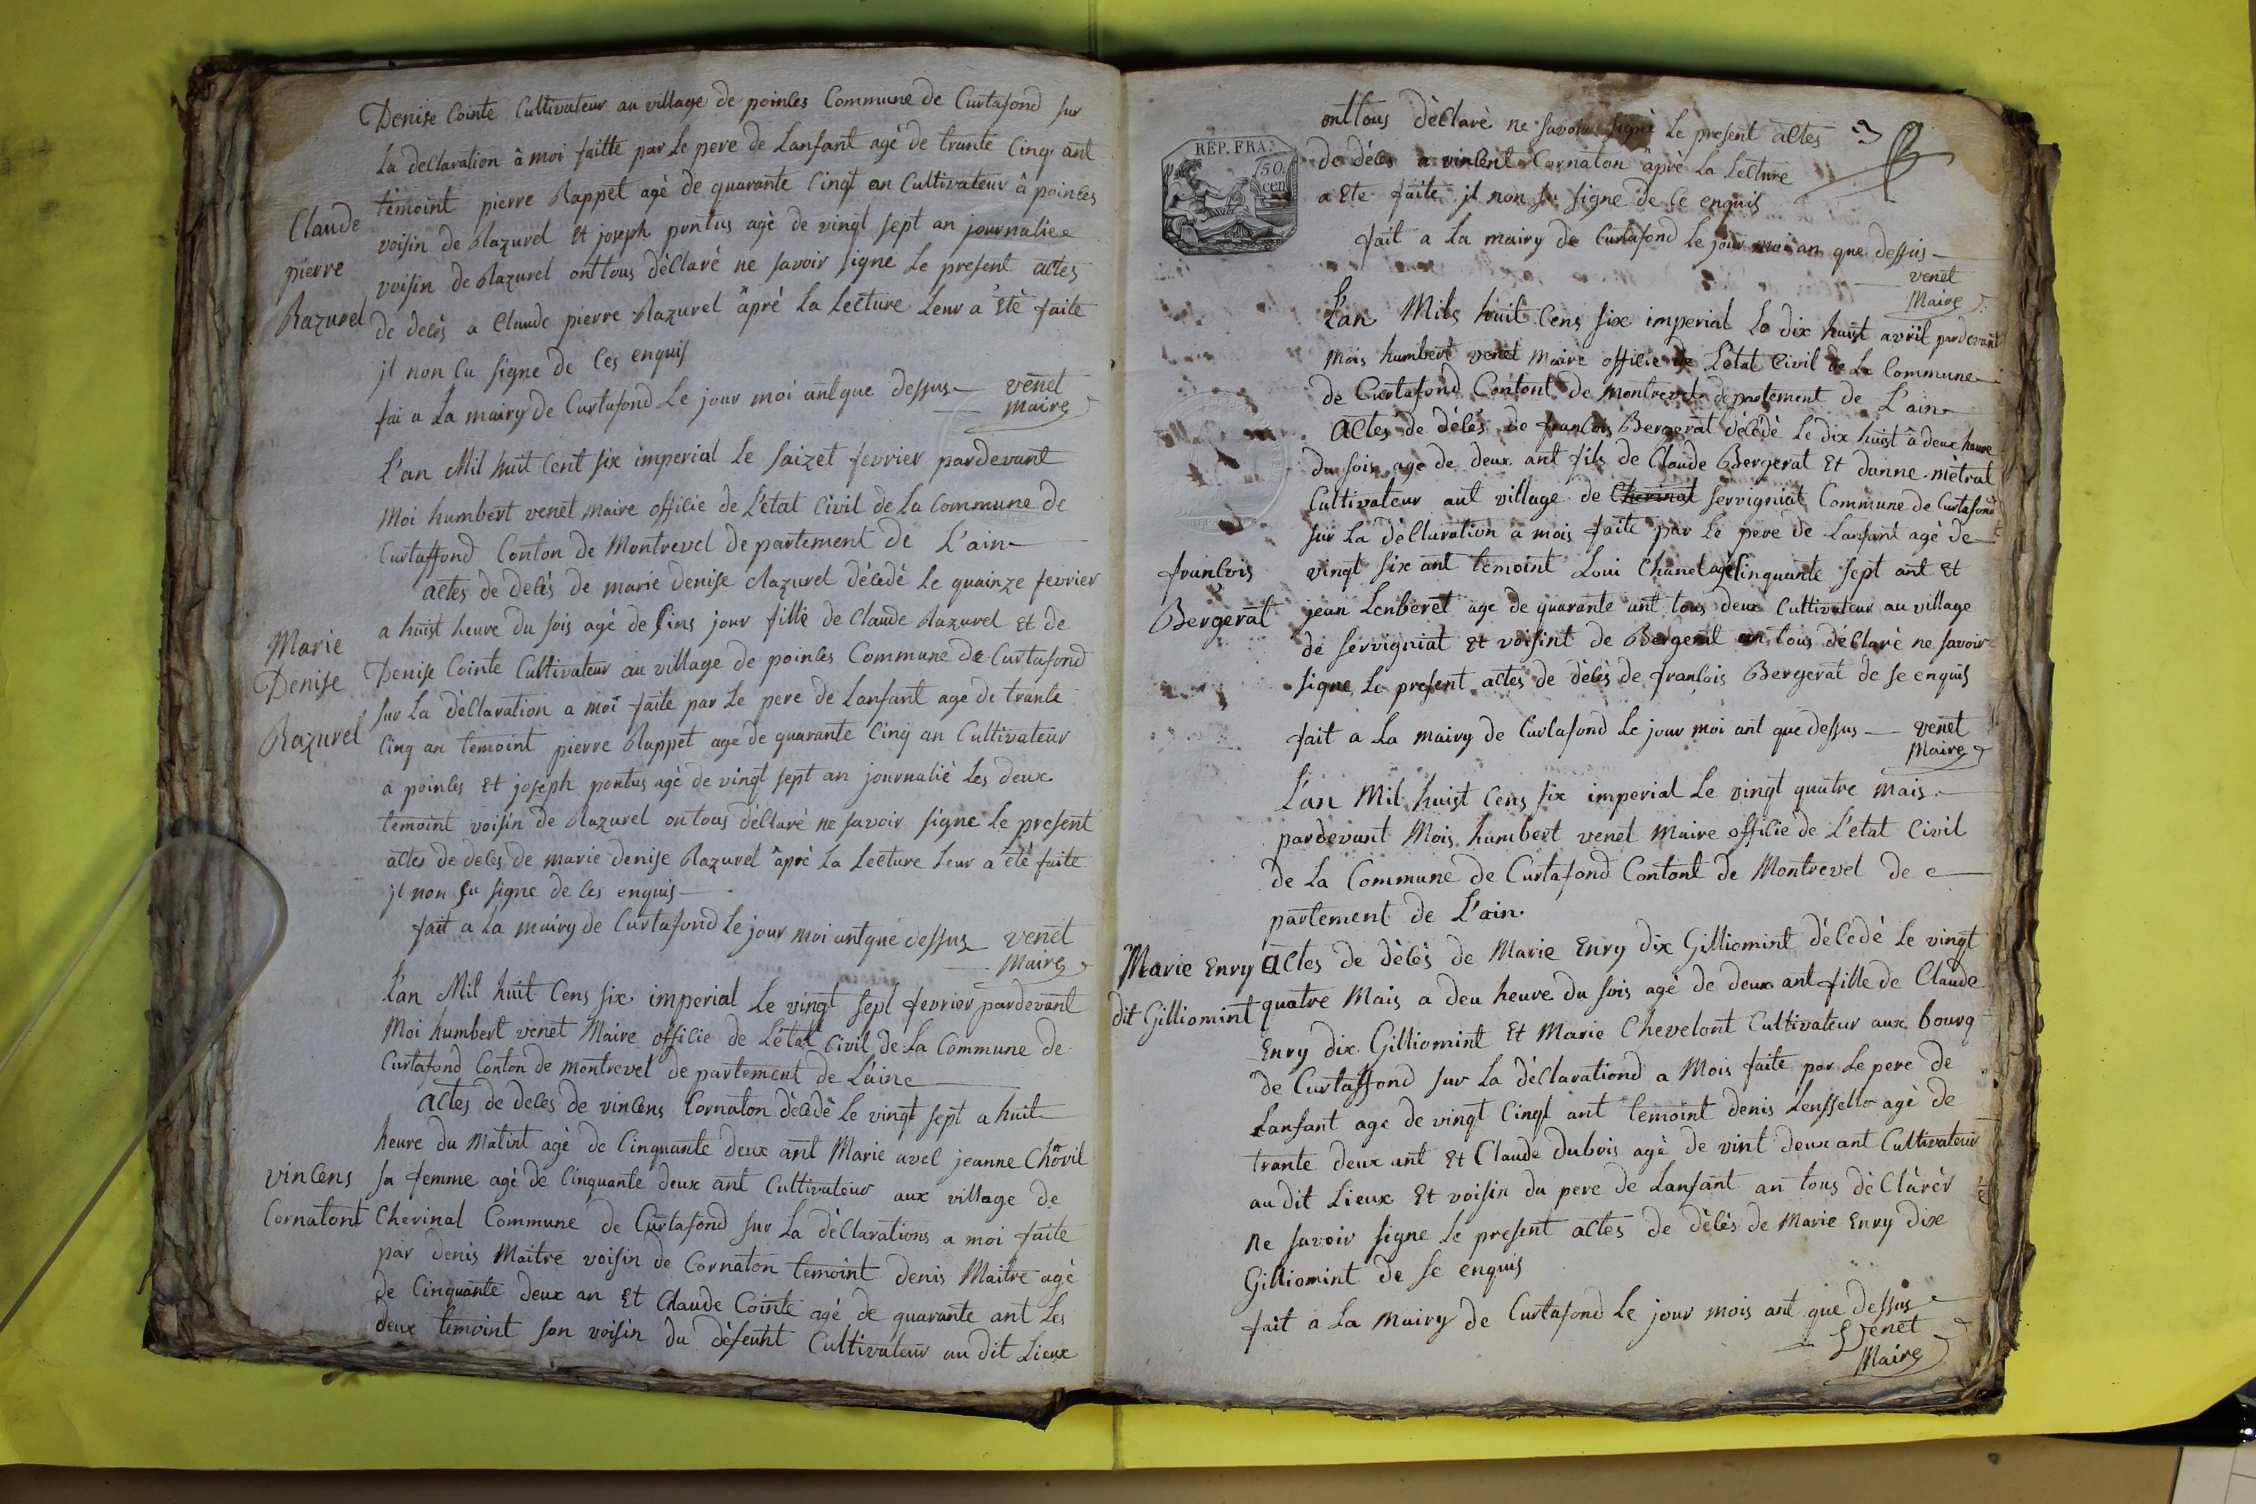 Denise Cointe Cultivateur au village de poinles Commune de Curtafond sur
La declaration â moi faitte par Le pere de Lanfant agè de trante Cinq ant
temoint pierre Rappet agè de quarante Cinqt an Cultivateur â poinles
voisin de Razurel Et joseph pontus agè de vingt sept an journalier
voisin de Razurel ont tous dèclarè ne savoir signe Le present actes
de delès a Claude pierre Razurel âprè La Lecture Leur a Etè faite
jl non Cu signe de Ces enquis
fai a La mairy de Curtafond Le jour moi ant que dessus venet
Maire
Claude
pierre
Razurel
L'an Mil huit Cent six imperial Le saizet fevrier pardevant
Moi humbert venet Maire offilie de L'ètat Civil de La Commune de
Curtaffond Conton de Montrevel de partement de L'ain
actes de delès de marie denise Razurel dèledè Le quainze fevrier
a huist heure du sois agè de Sins jour fille de Claude Razurel Et de
Denise Cointe Cultivateur au village de poinles Commune de Curtafond
sur La dèClaration a moi faite par Le pere de Lanfant age de trante
Cinq an temoint pierre Rappet age de quarante Cinq an Cultivateur
a poinles Et joseph pontus agè de vingt sept an journaliè Les deux
temoint voisin de Razurel on tous dèclarè ne savoir signe Le present
actes de deles de marie denise Razurel âprè La Lecture Leur a étè faite
jl non Su signe de Ces enquis
fait a La mairy de Curtafond Le jour moi ant que dessus venet
Maire
Marie
Denise
Razurel
L'an Mil huit Cens six imperial Le vingt sept fevrier pardevant
Moi humbert venet Maire offilie de Létat Civil de La Commune de
Curtafond Conton de Montrevel de partement de L'ain
actes de deles de vinlens Cornaton dèledè Le vingt sept a huit
heure du Matint agè de Cinquante deux ant Marie avel jeanne
sa femme agè de Cinquante deux ant Cultivateur aux village de
Cherinal Commune de Curtafond sur La dèClarations a moi faite
par denis Maitre voisin de Cornaton temoint denis Maitre agè
de Cinquante deux an Et Claude Cointe agè de quarante ant Les
deux temoint son voisin du dèfeunt Cultivateur au dit Lieux
vinlens
Cornatont
REP. FRA.
50
cen
ont tous dèclarè ne savoir signè Le present actes 3
de dèles a vinlent Cornaton âprè La Lecture
a Ete faite jl non su signe de Ce enquis
fait a La mairy de Curtafond Le jour moi an que dessus
venet
Maire
L'an Mils huit Cens six imperial Le dix huit avril pardevant
mois humbert venet maire offilie de L'etat Civil de La Commune
de Curtafond Contont de montrevel departement de L'ain
actes de dèlès de franlois Bergerat dèlédè Le dix huist â deux heure
du sois age de deux ant fils de Claude Bergerat Et danne mètral
Cultivateur aut village de Cherinat servigniat Commune de Curtafond
sur La dèClaration a mois faite par Le pere de Lanfant agè de
vingt six ant temoint Loui Chanel agè Cinquante sept ant Et
jean Lenberet age de quarante ant tous deux Cultivateur au village
de servigniat Et voisint de Bergerat an tous déClarè ne savoir
signe Le present actes de dèlès de franlois Bergerat de se enquis
fait a La mairy de Curtafond Le jour moi ant que dessus venet
Maire
franlois
Bergerat
L'an Mil huist Cens six imperial Le vingt quatre mais
pardevant Mois humbert venet Maire offilie de L'etat Civil
de La Commune de Curtafond Contont de Montrevel de
partement de L'ain
actes de dèlès de Marie Enry dix Gilliomint dèledè Le vingt
quatre Mais a deu heure du sois agè de deux ant fille de Claude
Enry dix Gilliomint Et Marie Chevelont Cultivateur aux bourg
de Curtaffond sur La dèClarationd a Mois faite par Le pere de
Lanfant age de vingt Cinqt ant temoint denis agè de
trante deux ant Et Claude dubois agè de vint deux ant Cultivateur
au dit Lieux Et voisin du pere de Lanfant an tous dèClarèr
ne savoir signe Le present actes de dèlès de Marie Enry dix
Gilliomint de se enquis
fait a La Mairy de Curtafond Le jour mois ant que dessus
Venet
Maire
Marie Enry
dit Gilliomint